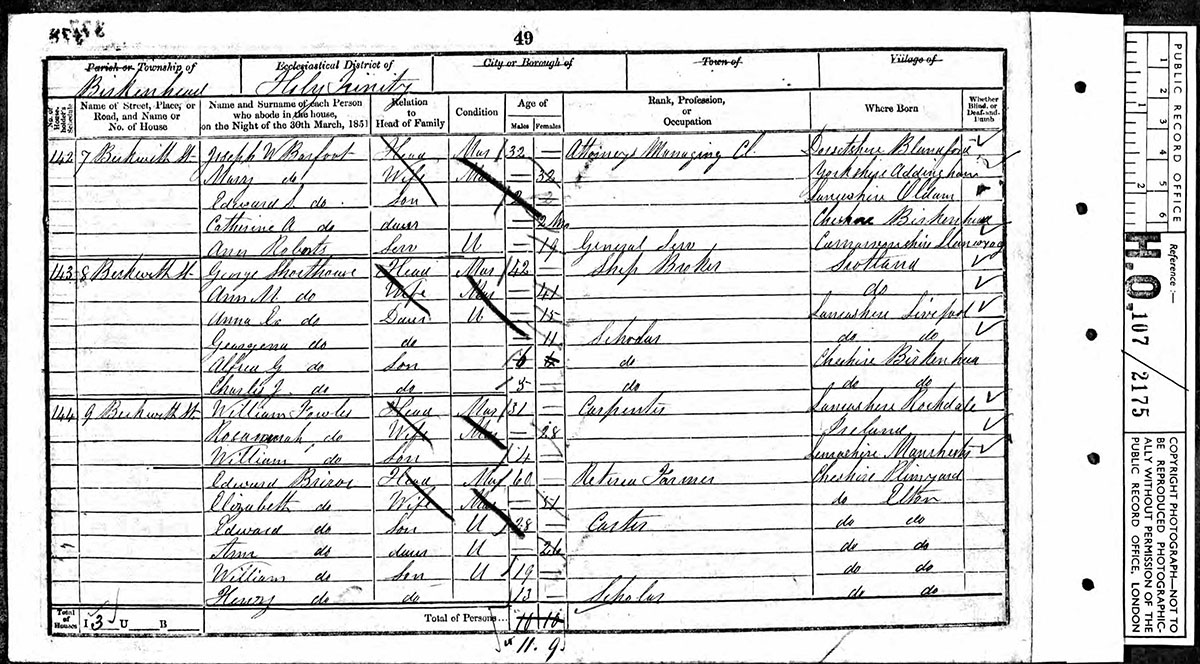 49
Parish or Township of Birkenhead
Ecclesiastical District of Holy Trinity
City or Borough of
Town of
Village of
No. of Householder's Schedule
Name of Street, Place, or Road, and Name or No. of House
Name and Surname of each Person who abode in the house, on the Night of the 30th March, 1851
Relation to Head of Family
Condition
Age of
Males Females
Rank, Profession, or Occupation
Where Born
Whether Blind, or Deaf-and-Dumb
142 7 Beckwith St. Joseph W Barfoot Head Mar 32 — Attorneys Managing Cl. Dorsetshire Blandford
Mary do Wife Mar — 32 Yorkshire Addingham
Edward S. do Son 2 Lancashire Oldam
Catherine A do daur — 2 Mo Cheshire Birkenhead
Ann Roberts Serv U — 19 General Serv Carnarvonshire
143 8 Beckwith St. George Shorthouse Head Mar 42 — Ship Broker Scotland
Ann M. do Wife Mar — 41 do
Anna do Daur U — 15 Lancashire Liverpool
Georgena do do — 11 Scholar do do
Alfred G do Son 6 do Cheshire Birkenhead
Charles J. do do 5 — do do do
144 9 Beckwith St. William Fowles Head Mar 31 — Carpenter Lancashire Rochdale
Rosannah do Wife Mar — 28 Ireland
William do Son 4 — Manchester
Edward Head Mar 60 — Retired Farmer Cheshire
Elizabeth do Wife Mar — 51 do Elton
Edward do Son U 28 — Carter do do
Ann do daur U — 26 do do
William do Son U 19 — do do
Henry do do 13 — Scholar do do
Total of Houses I 3 U B Total of Persons... 10 10
11. 9
PUBLIC RECORD OFFICE
1 2 3 4 5 6
1 2
Reference :—
H.O. 107 / 2175
COPYRIGHT PHOTOGRAPH—NOT TO BE REPRODUCED PHOTOGRAPHICALLY WITHOUT PERMISSION OF THE PUBLIC RECORD OFFICE, LONDON